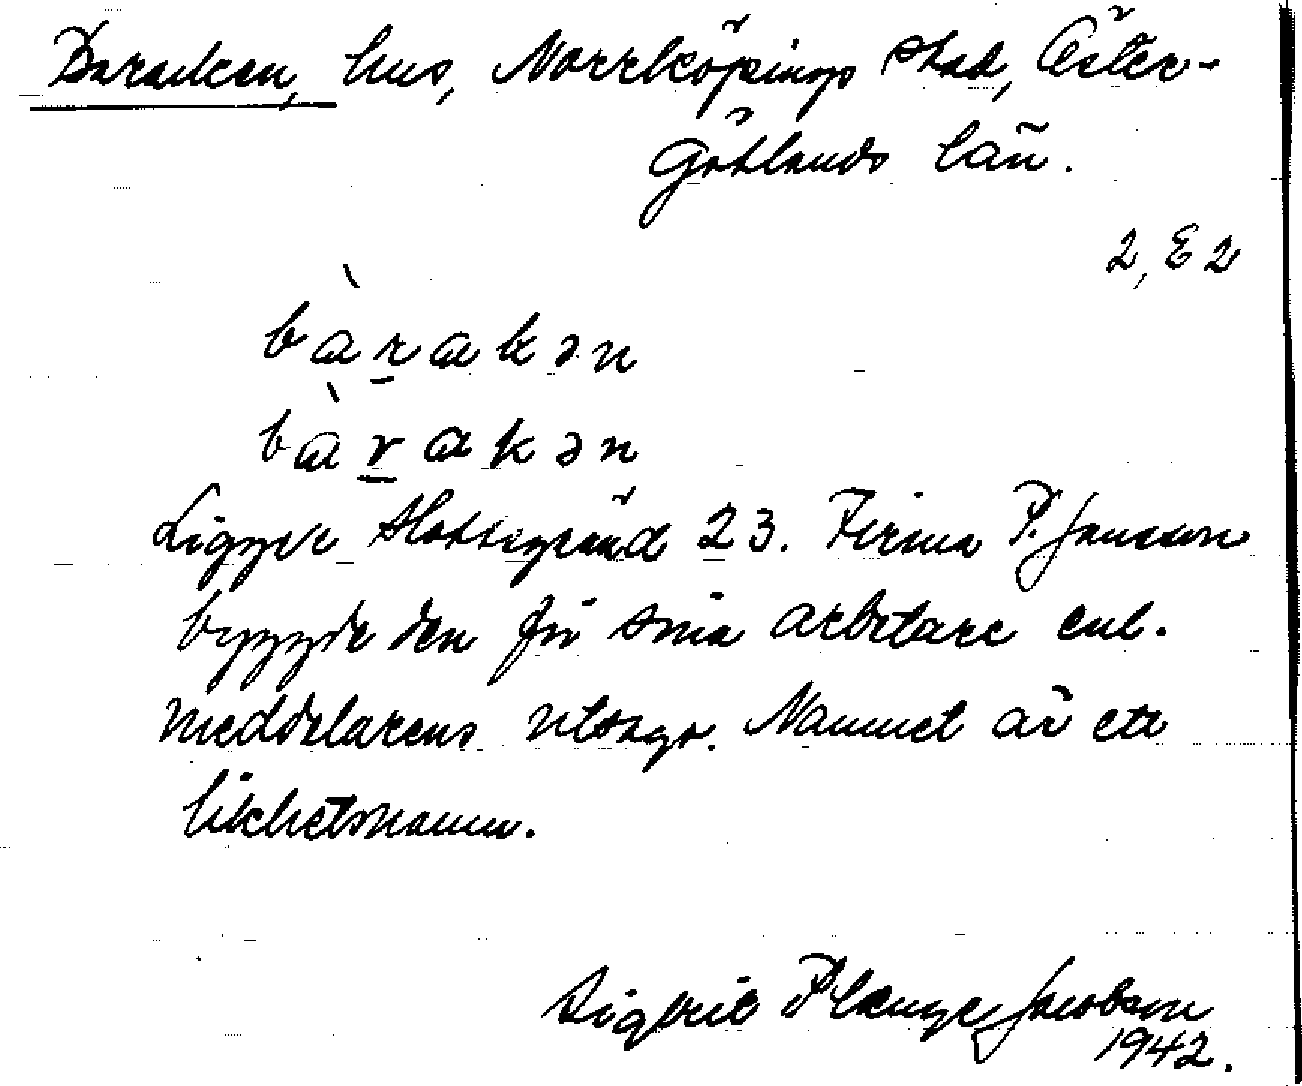 Baracken, hus, Norrköpings stad, Öster-
götlands län.
2, E 2
bàrakən
bàrakən
Ligger Slottsgränd 23. Firma P. Jansson
byggde den för sina arbetare enl.
meddelarens utsago. Namnet är ett
likhetsnamn.
Sigbrit Plænge Jacobson
1942.